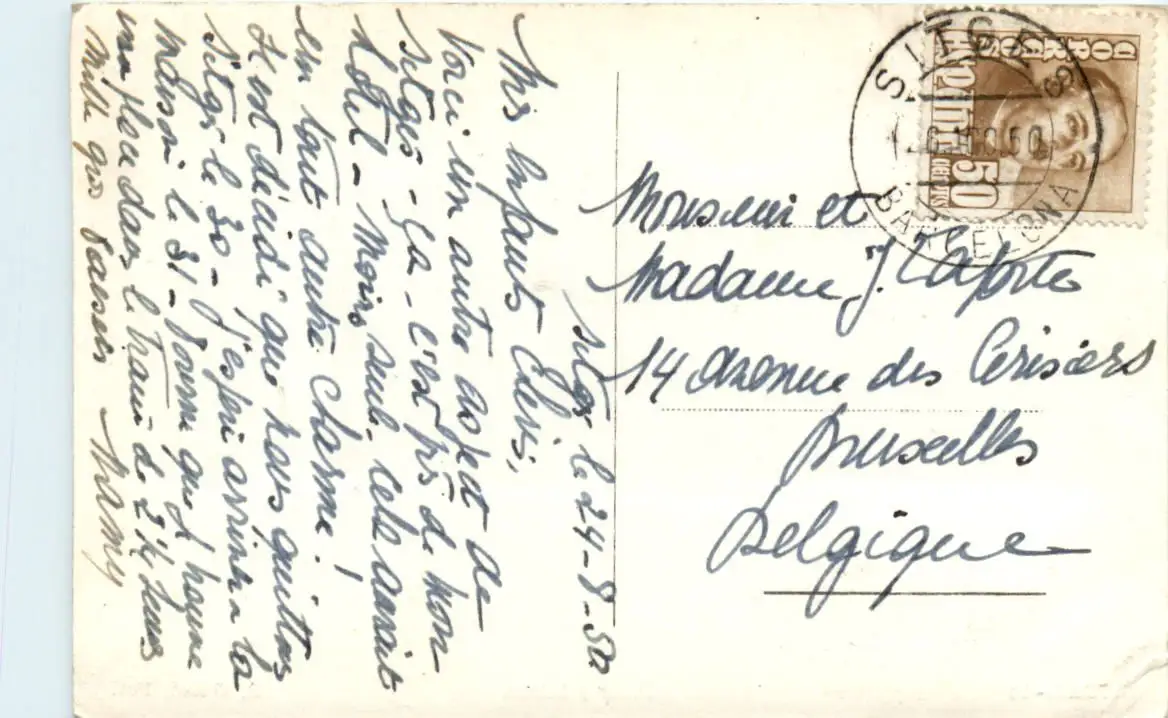 Sitges le 24-8-50
Mes enfants chéris,
Voici un autre aspect de
Sitges - Ça - c'est près de mon
hôtel - Moins seule, cela aurait
un tout autre charme!
Il est décidé que nous quittons
Sitges le 30 - J'espère arriver à la
maison le 31 - Pourvu que j'trouve
une place dans le train de
Mille gros baisers Mamy
Monsieur et
Madame J. Laporte
14 avenue des Cerisiers
Bruxelles
Belgique
SITGES
BARCELONA
CORREOS
50